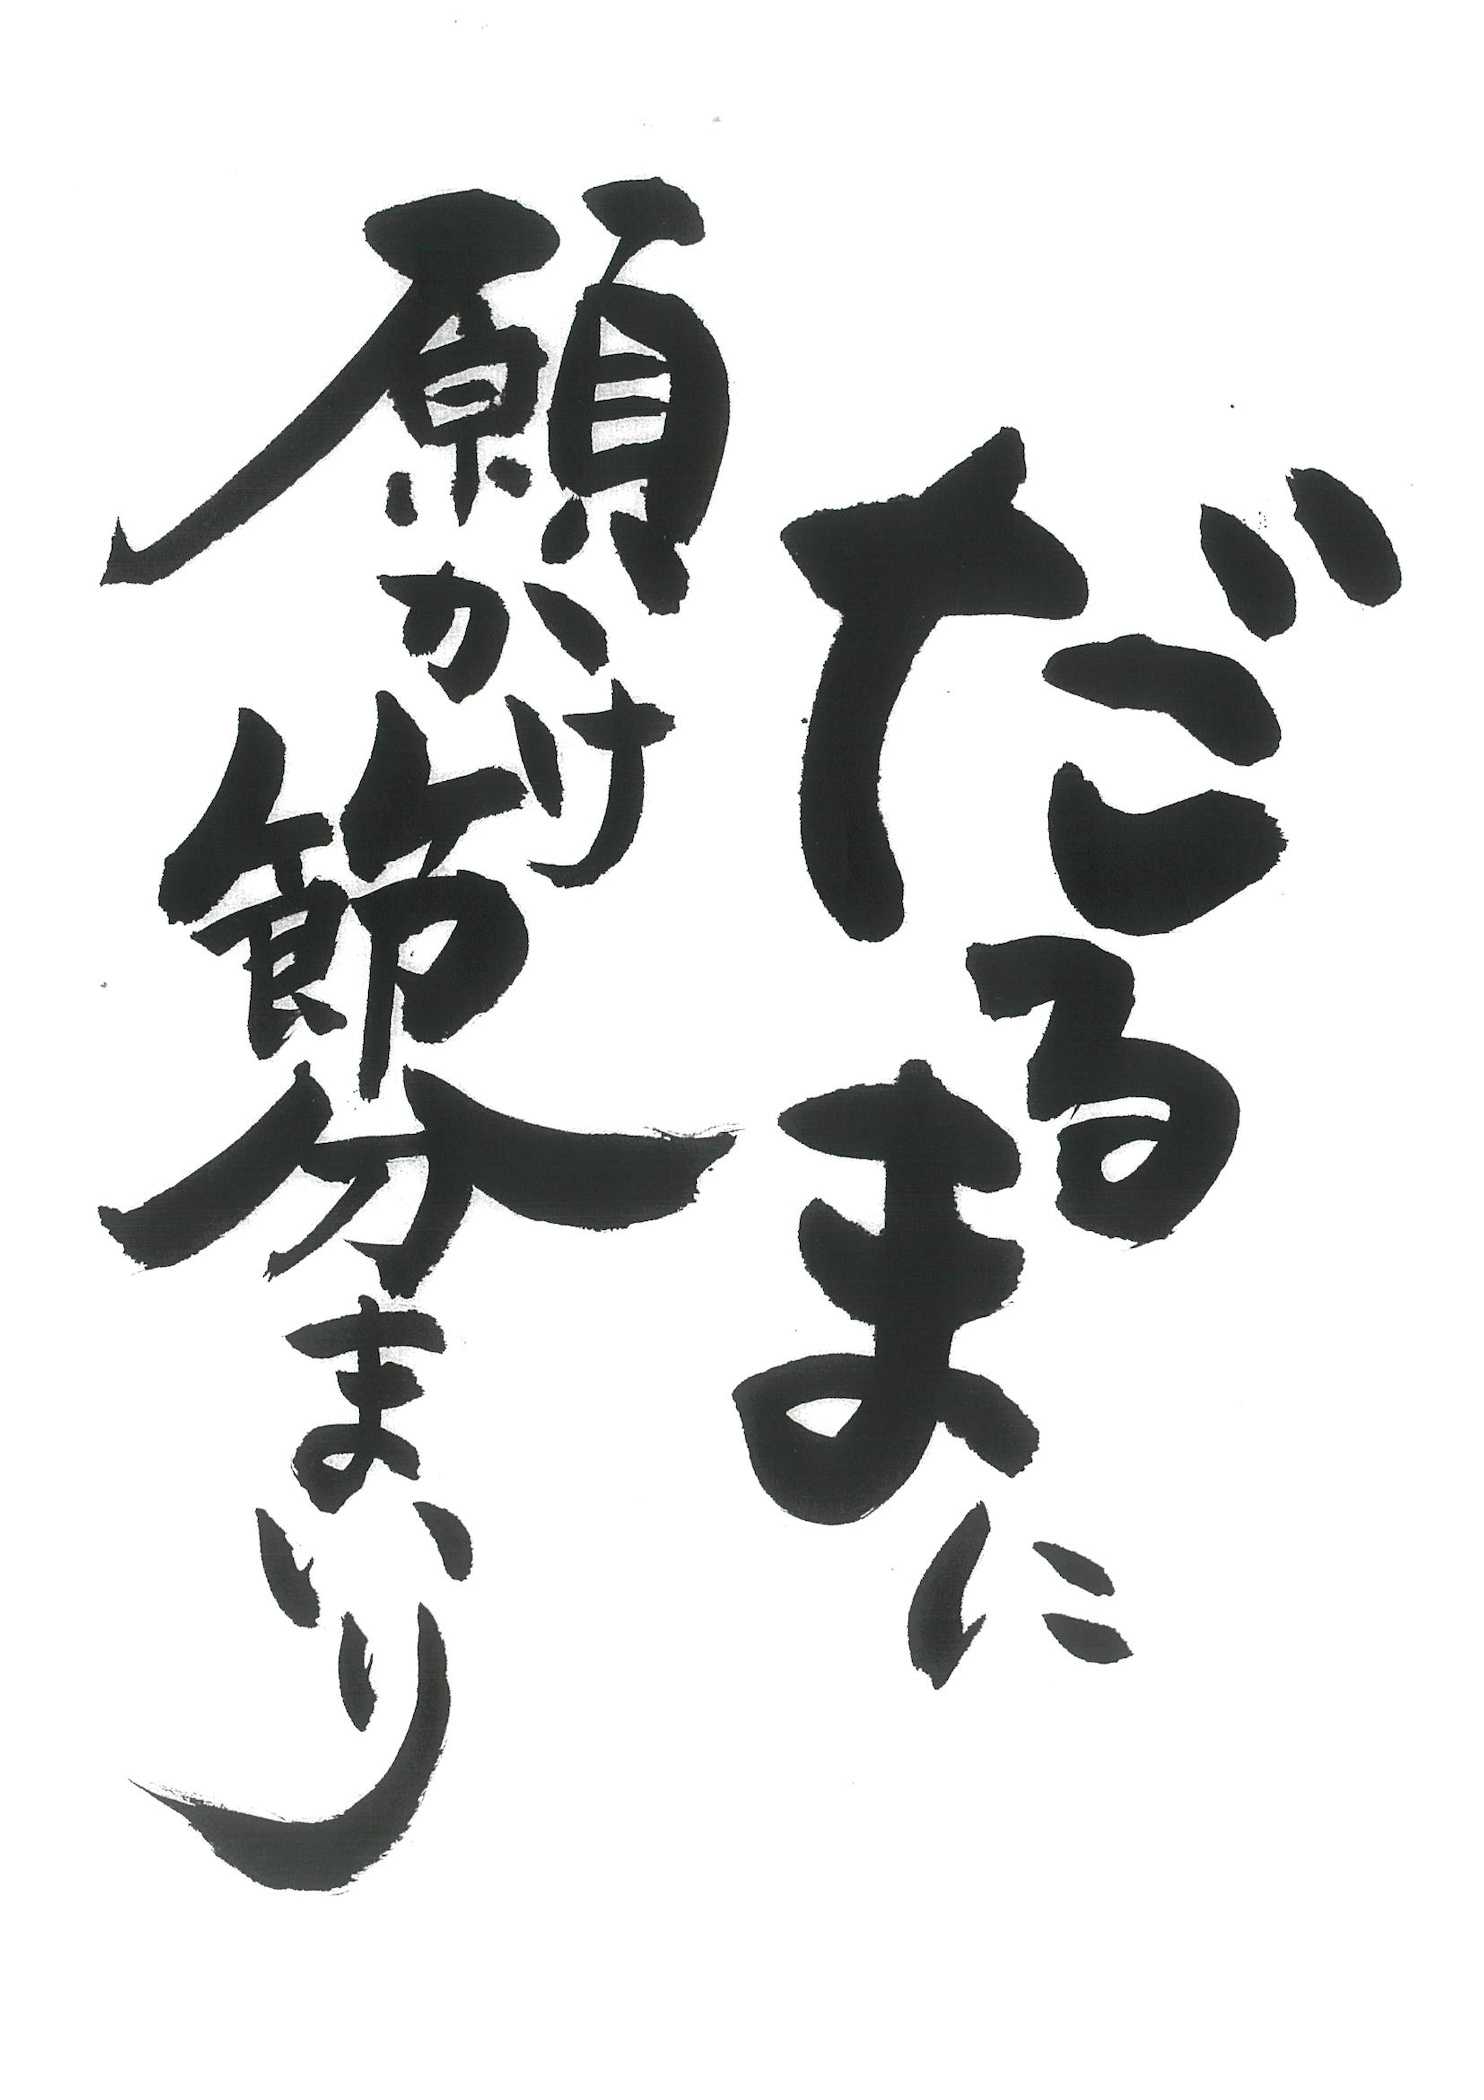 だるまに
願かけ節分まいり